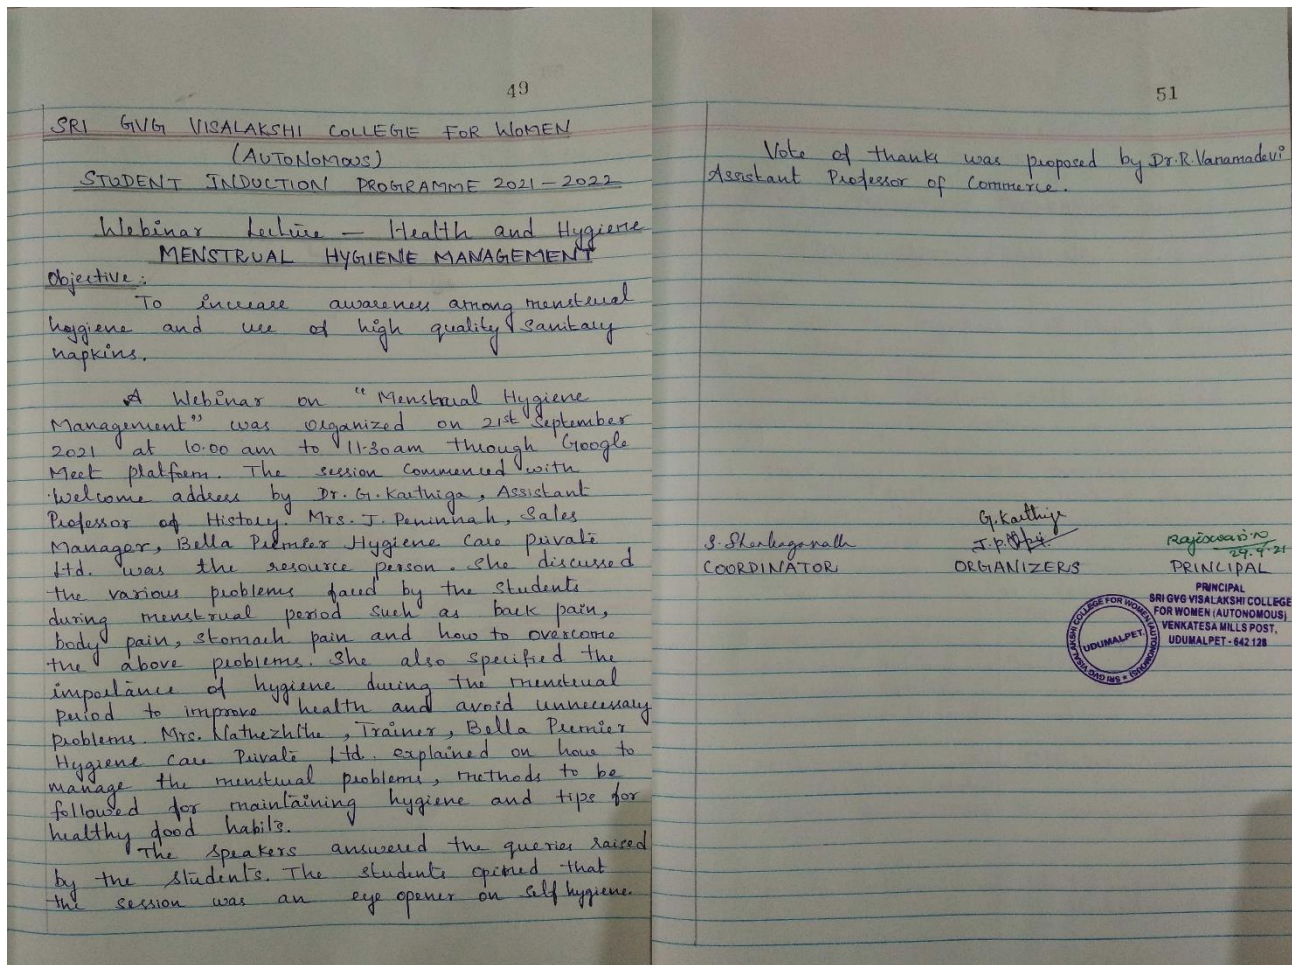 49
SRI GVG VISALAKSHI COLLEGE FOR WOMEN
(AUTONOMOUS)
STUDENT INDUCTION PROGRAMME 2021-2022
Webinar Lecture - Health and Hygiene
MENSTRUAL HYGIENE MANAGEMENT
Objective:
To increase awareness among menstrual
hygiene and use of high quality sanitary
napkins.
A Webinar on "Menstrual Hygiene
Management" was organized on 21st September
2021 at 10.00 am to 11.30am through Google
Meet platform. The session commenced with
welcome address by Dr. G. Karthiga, Assistant
Professor of History. Mrs. J. Peninnah, Sales
Manager, Bella Premier Hygiene Care Private
Ltd. was the resource person. She discussed
the various problems faced by the students
during menstrual period such as back pain,
body pain, stomach pain and how to overcome
the above problems. She also specified the
importance of hygiene during the menstrual
period to improve health and avoid unnecessary
problems. Mrs. Nathezhlthe, Trainer, Bella Premier
Hygiene Care Private Ltd. explained on how to
manage the menstrual problems, methods to be
followed for maintaining hygiene and tips for
healthy food habits.
The speakers answered the queries raised
by the students. The students opined that
the session was an eye opener on self hygiene.
51
Vote of thanks was proposed by Dr.R.Vanamadevi
Assistant Professor of Commerce.
G. Karthiga
COORDINATOR
ORGANIZERS
PRINCIPAL
PRINCIPAL
SRI GVG VISALAKSHI COLLEGE
FOR WOMEN (AUTONOMOUS)
VENKATESA MILLS POST,
UDUMALPET - 642 128
SRI GVG VISALAKSHI COLLEGE FOR WOMEN (AUTONOMOUS)
UDUMALPET.